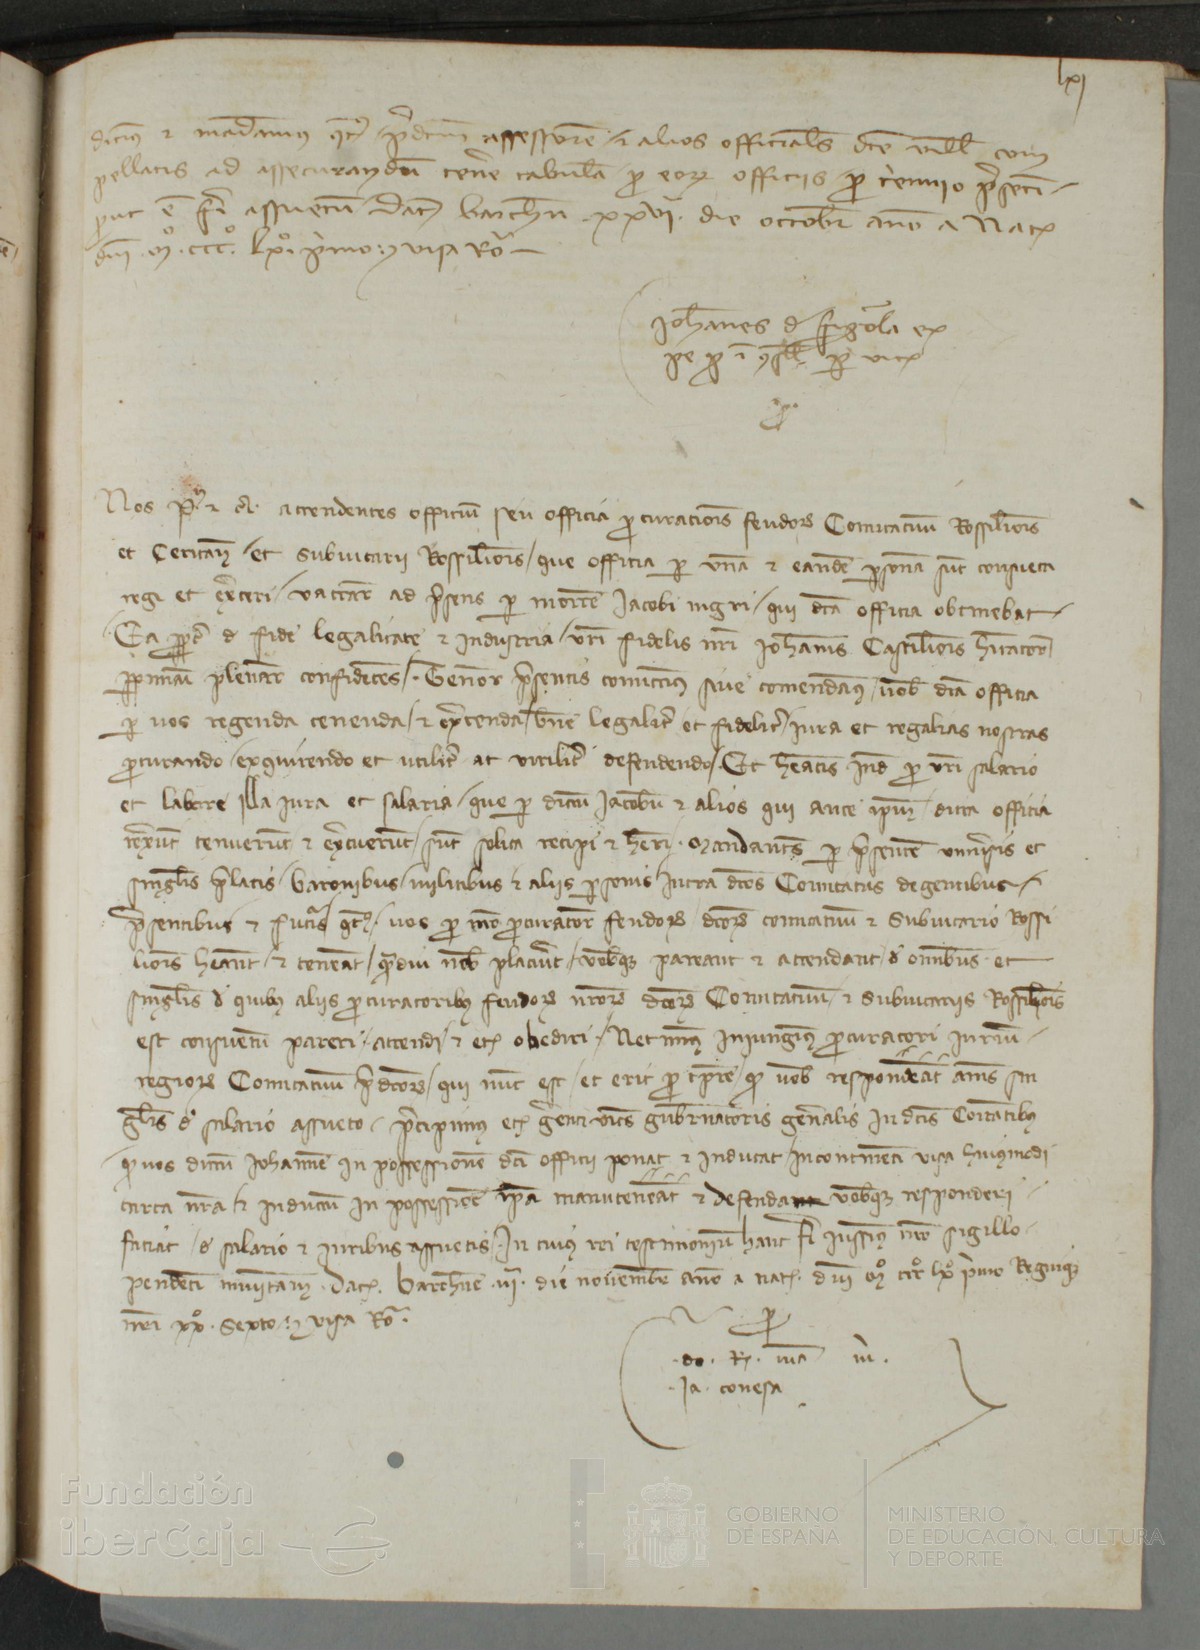 lxj
dicimus et mandamus
pellatis ad assecurandum tenere tabulam pro eorum officiis pro triennio
prout est fieri assuetum Dat Barchne xxvi die octobr anno a Nat
dni Mº CCCº lxº primo visa Rº
Johannes de
Nos P et c attendentes officium seu officia procurationis feudorum Comitatuum Rossilionis
et Ceritan et subvicarii Rossilionis que officia per unam et eandem personam sunt consueta
regi et exerceri vaccare ad presens per mortem Jacobi nigri qui dicta officia obtinebat
Ea propter de fide legalitate et industria vestri fidelis nostri Johannis Castilionis
plenarie confidentes Tenore presentis comittimus sive comendamus vobis dicta officia
per vos regenda tenenda et exercenda bene legaliter et fideliter jura et regalias nostras
procurando exquirendo et utiliter ac viriliter defendendo Et habeatis inde pro vestri salario
et labore illa jura et salaria que per dictum Jacobum et alios qui ante ipsum dicta officia
rexerunt tenuerunt et exercuerunt sunt solita recipi et haberi mandantes per presentem universis et
singulis prelatis baronibus militibus et aliis personis intra dictos Comitatus degentibus
presentibus et futuris vos pro nostro procuratore feudorum dictorum comitatuum et subvicario Rossi
lionis habeant et teneant quamdiu nobis placuerit vobisque pareant et attendant de omnibus et
singulis de quibus aliis procuratoribus feudorum nostrorum dictorum Comitatuum et subvicariis Rossilionis
est consuetum pareri attendi et etc obediri Necminus injungimus procuratori jurium
regiorum Comitatuum predictorum qui nunc est et erit pro tempore quod vobis respondeat annis sin
gulis de salario assueto precipimus etc gerenti vices gubernatoris generalis in dictis Comitatibus
quod vos dictum Johannem in possessionem dicti officii ponat et inducat incontinenti visa huiusmodi
carta nostra et inductum in possessione ipsa manuteneat et defendat vobisque responderi
faciat de salario et juribus assuetis In cuius rei testimonium hanc fieri jussimus nostro sigillo
pendenti munitam Dat Barchne iii die novembr anno a nat dni Mº CCCº lxº primo Regnique
nostri xxº sexto visa Rº
do R ma
Ja conesa
Fundación
iberCaja
GOBIERNO
DE ESPAÑA
MINISTERIO
DE EDUCACIÓN, CULTURA
Y DEPORTE